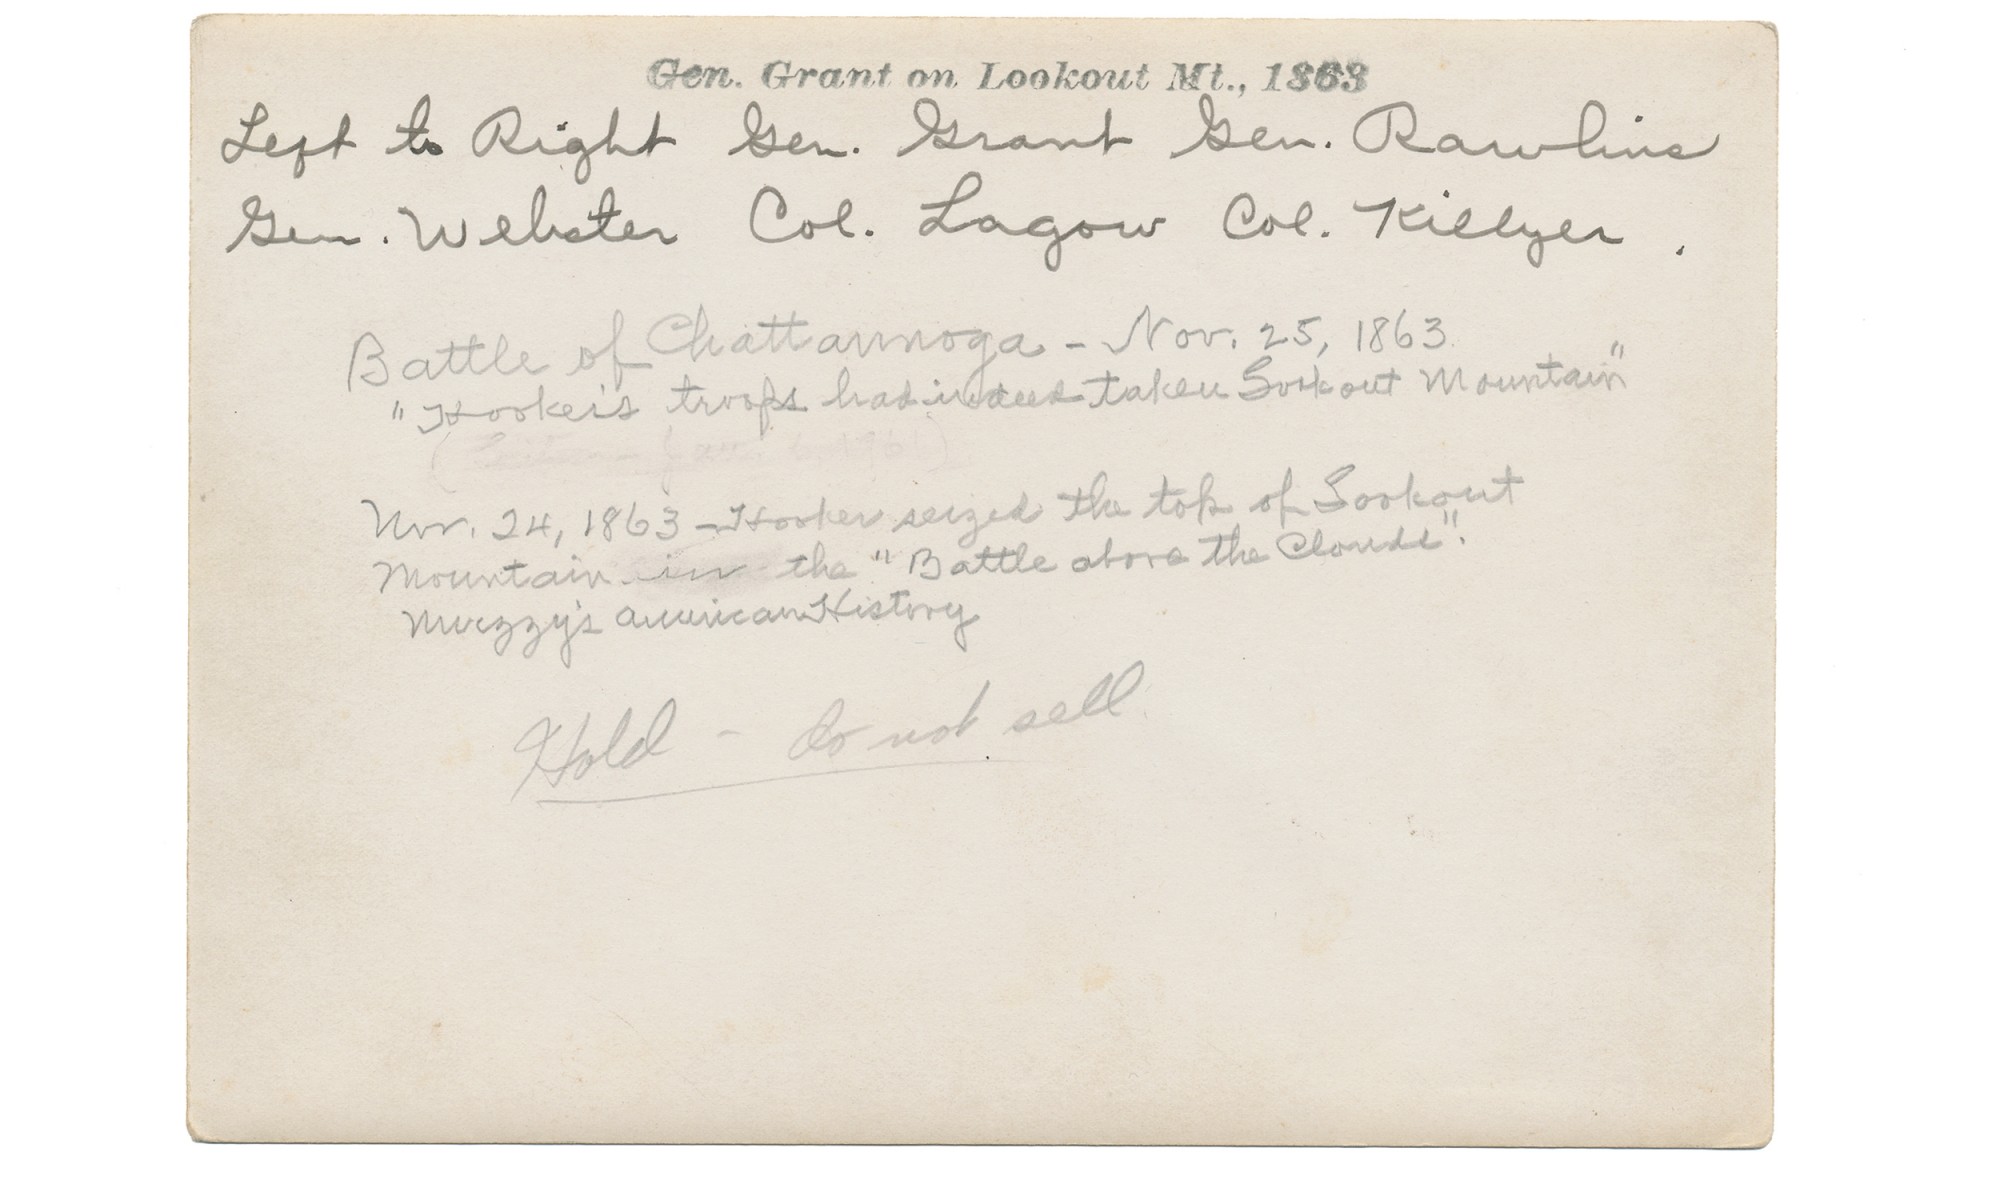 Gen. Grant on Lookout Mt., 1863
Left to Right Gen. Grant Gen. Rawlins
Gen. Webster Col. Lagow Col. Killyer.
Battle of Chattannoga - Nov. 25, 1863
"Hooker's troops had indeed taken Lookout Mountain"
Nov. 24, 1863 - Hooker seized the top of Lookout
Mountain in the "Battle above the Clouds".
Muzzy's American History
Hold - do not sell